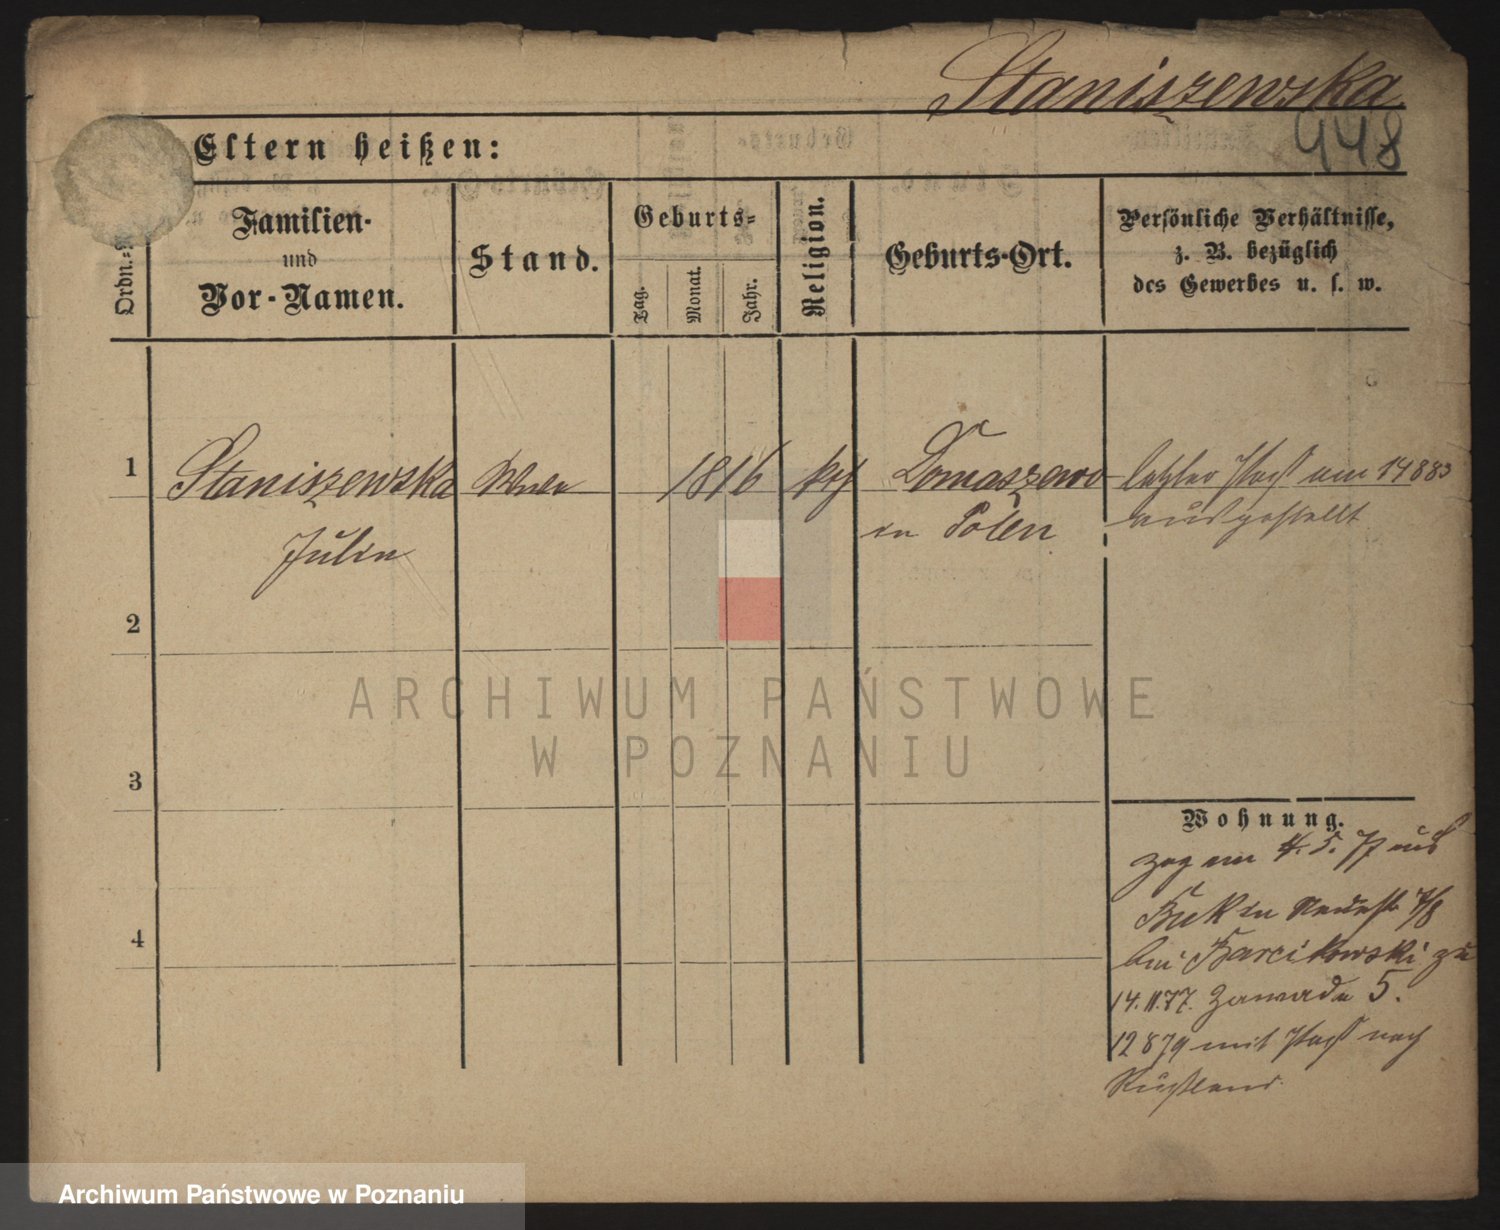 Staniszewska
948
Eltern heißen:
Ordn.-
Familien-
und
Vor-Namen.
Stand.
Geburts-
Tag.
Monat.
Jahr.
Religion.
Geburts-Ort.
Persönliche Verhältnisse,
z. B. bezüglich
des Gewerbes u. s. w.
1
Staniszewska
Julia
1816
kth
Domaszewo
in Polen
letzter Pass am 14 883
ausgestellt
2
3
4
Wohnung.
zog am 4. 5. 77 aus
Buk in Neuestr 7/8
bei Barcikowski zu
14.11.77. Zawade 5.
12 879 mit Pass nach
Russland
ARCHIWUM PAŃSTWOWE
W POZNANIU
Archiwum Państwowe w Poznaniu